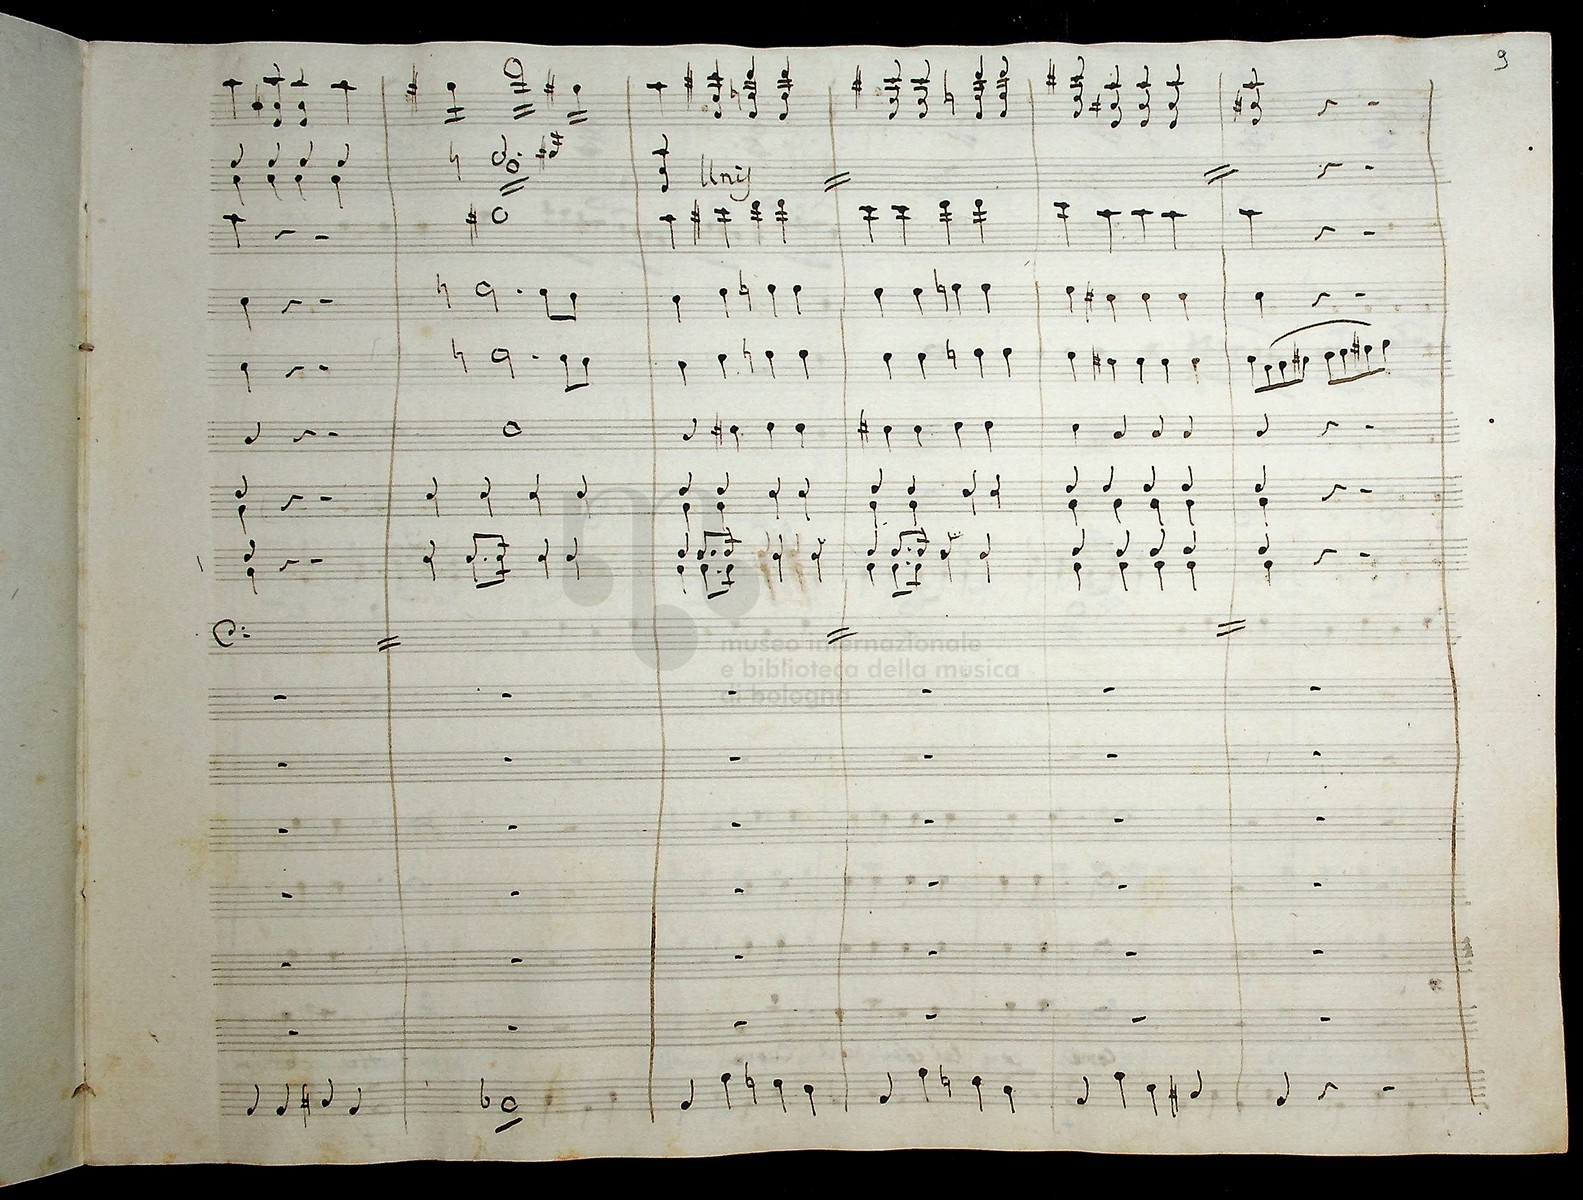 9
Unis
museo internazionale
e biblioteca della musica
di bologna